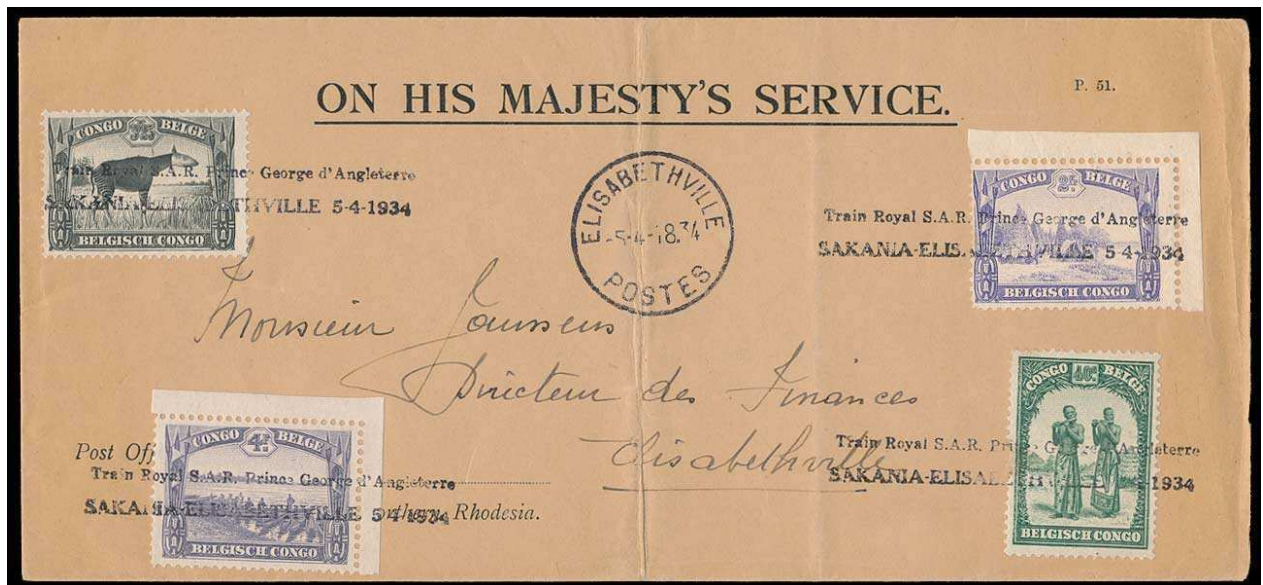 ON HIS MAJESTY'S SERVICE.
P. 51.
CONGO BELGE
BELGISCH CONGO
Train Royal S.A.R. Prince George d'Angleterre
SAKANIA-ELISABETHVILLE 5-4-1934
ELISABETHVILLE
-5-4-18.34
POSTES
CONGO BELGE
BELGISCH CONGO
Train Royal S.A.R. Prince George d'Angleterre
SAKANIA-ELISABETHVILLE 5-4-1934
Monsieur Janssens
Directeur des Finances
Elisabethville
CONGO 40c BELGE
BELGISCH CONGO
Train Royal S.A.R. Prince George d'Angleterre
SAKANIA-ELISABETHVILLE 1934
Post Off
CONGO 4F BELGE
BELGISCH CONGO
Train Royal S.A.R. Prince George d'Angleterre
SAKANIA-ELISABETHVILLE 5-4-1934
orthern Rhodesia.